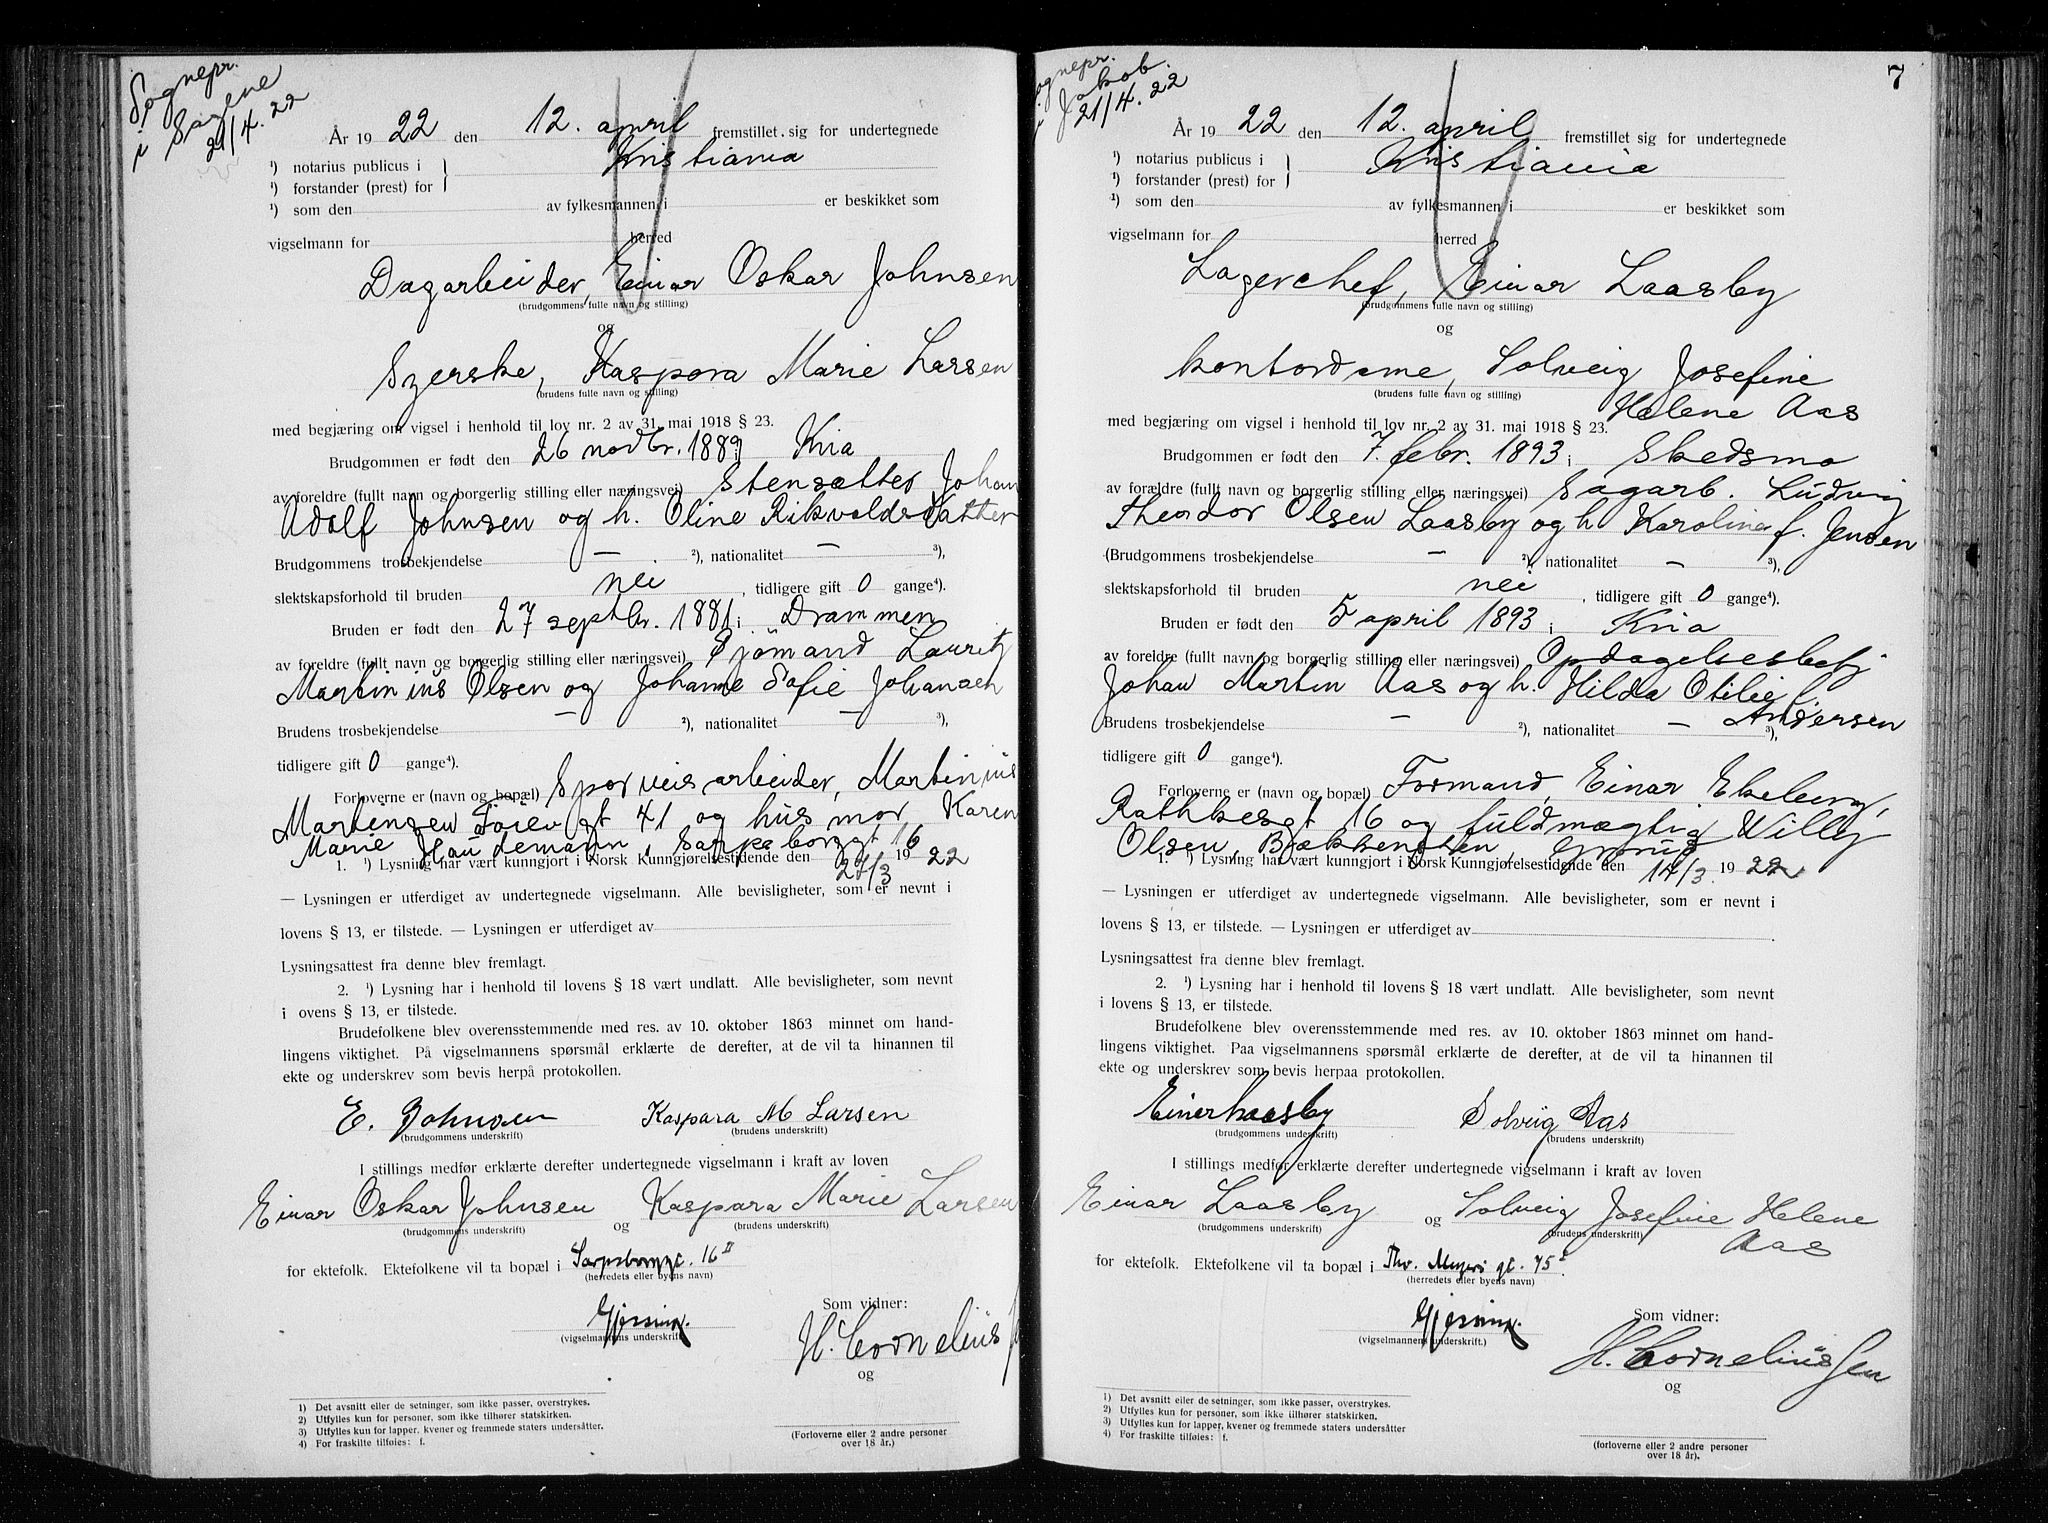 Sognepr.
i Sagene
21/4.22
År 1922 den 12. april fremstillet sig for undertegnede
¹) notarius publicus i
Kristiania
¹) forstander (prest) for
¹) som den av fylkesmannen i er beskikket som
vigselmann for herred
Dagarbeider, Einar Oskar Johnsen
(brudgommens fulle navn og stilling)
og
Syerske, Kaspara Marie Larsen
(brudens fulle navn og stilling)
med begjæring om vigsel i henhold til lov nr. 2 av 31. mai 1918 § 23.
Brudgommen er født den 26 novbr. 1889 i Kria
av foreldre (fullt navn og borgerlig stilling eller næringsvei) Stensætter Johan
Adolf Johnsen og h. Oline Rikvaldsdatter
Brudgommens trosbekjendelse — ²), nationalitet — ³),
slektskapsforhold til bruden nei, tidligere gift 0 gange⁴).
Bruden er født den 27 septbr. 1881 i Drammen
av foreldre (fullt navn og borgerlig stilling eller næringsvei) Sjømand Lauritz
Martinius Olsen og Johanne Sofie Johansen
Brudens trosbekjendelse — ²), nationalitet — ³),
tidligere gift 0 gange⁴).
Forloverne er (navn og bopæl) Sporveisarbeider, Martinius
Martinsen gt 41 og husmor Karen
Marie Haudemann, Sarpsborggt 16
1. ¹) Lysning har vært kunngjort i Norsk Kunngjørelsestidende den 24/3 1922
— Lysningen er utferdiget av undertegnede vigselmann. Alle bevisligheter, som er nevnt i
lovens § 13, er tilstede. — Lysningen er utferdiget av
Lysningsattest fra denne blev fremlagt.
2. ¹) Lysning har i henhold til lovens § 18 vært undlatt. Alle bevisligheter, som nevnt
i ovens § 13, er tilstede.
Brudefolkene blev overensstemmende med res. av 10. oktober 1863 minnet om hand-
lingens viktighet. På vigselmannens spørsmål erklærte de derefter, at de vil ta hinannen til
ekte og underskrev som bevis herpå protokollen.
E. Johnsen Kaspara M Larsen
(brudgommens underskrift) (brudens underskrift)
I stillings medfør erklærte derefter undertegnede vigselmann i kraft av loven
Einar Oskar Johnsen og Kaspara Marie Larsen
(brudgommens underskrift) (brudens underskrift)
for ektefolk. Ektefolkene vil ta bopæl i Sarpsborggt. 16 II
(herredets eller byens navn)
Gjessing.
(vigselmannens underskrift)
Som vidner:
H. Cornelius
og
1) Det avsnitt eller de setninger, som ikke passer, overstrykes.
2) Utfylles kun for personer, som ikke tilhører statskirken.
3) Utfylles kun for lapper, kvener og fremmede staters undersåtter.
4) For fraskilte tilføies: f.
(Forloverne eller 2 andre personer
over 18 år.)
7
ognepr.
i Jakob.
21/4.22
År 1922 den 12. april fremstillet sig for undertegnede
¹) notarius publicus i
Kristiania
¹) forstander (prest) for
¹) som den av fylkesmannen i er beskikket som
vigselmann for herred
Lagerchef, Einar Laasby
(brudgommens fulle navn og stilling)
og
Kontordame, Solveig Josefine
(brudens fulle navn og stilling)
Helene Aas
med begjæring om vigsel i henhold til lov nr. 2 av 31. mai 1918 § 23.
Brudgommen er født den 7. febr. 1893 i Skedsmo
av forældre (fullt navn og borgerlig stilling eller næringsvei) Sagarb. Ludvig
Theodor Olsen Laasby og h Karoline f. Jensen
(Brudgommens trosbekjendelse — ²), nationalitet — ³),
slektskapsforhold til bruden nei, tidligere gift 0 gange⁴).
Bruden er født den 5 april 1893 i Kria
av foreldre (fullt navn og borgerlig stilling eller næringsvei) Opdagelsesbetj
Johan Martin Aas og h. Hilda Otilie f.
Andersen
Brudens trosbekjendelse — ²), nationalitet — ³),
tidligere gift 0 gange⁴).
Forloverne er (navn og bopæl) Formand, Einar Ekeberg,
Rathkesgt 16 og fuldmægtig Willy
Olsen, Bakkenstien, Grorud
1. ¹) Lysning har vært kunngjort i Norsk Kunngjørelsestidende den 14/3. 1922
— Lysningen er utferdiget av undertegnede vigselmann. Alle bevisligheter, som er nevnt i
lovens § 13, er tilstede. — Lysningen er utferdiget av
Lysningsattest fra denne blev fremlagt.
2. ¹) Lysning har i henhold til lovens § 18 vært undlatt. Alle bevisligheter, som nevnt
i lovens § 13, er tilstede.
Brudefolkene blev overensstemmende med res. av 10. oktober 1863 minnet om hand-
lingens viktighet. Paa vigselmannens spørsmål erklærte de derefter, at de vil ta hinannen til
ekte og underskrev som bevis herpaa protokollen.
Einar Laasby Solveig Aas
(brudgommens underskrift) (brudens underskrift)
I stillings medfør erklærte derefter undertegnede vigselmann i kraft av loven
Einar Laasby og Solveig Josefine Helene
(brudgommens underskrift) (brudens underskrift)
Aas
for ektefolk. Ektefolkene vil ta bopæl i Thv. Meyers gt. 75 I
(herredets eller byens navn)
Gjessing.
(vigselmannens underskrift.)
Som vidner:
H. Corneliussen
og
1) Det avsnitt eller de setninger, som ikke passer, overstrykes.
2) Utfylles kun for personer, som ikke tilhører statskirken.
3) Utfylles kun for lapper, kvener og fremmede staters undersåtter
4) For fraskilte tilføies: f.
(forloverne eller 2 andre personer
over 18 år).